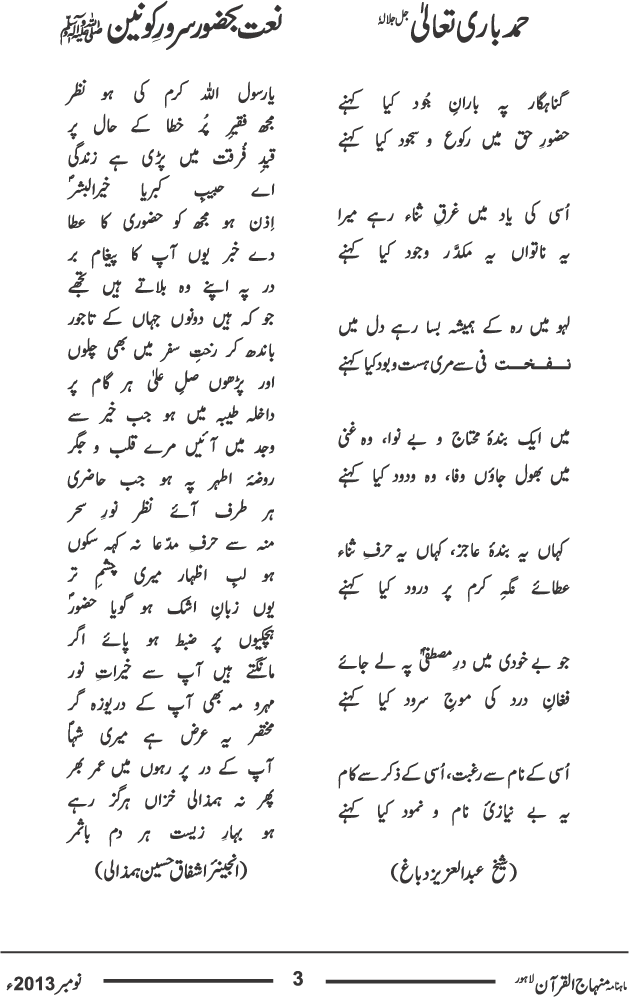 حمد باری تعالیٰ جل جلالہ
گناہگار پہ بارانِ جُود کیا کہنے
حضورِ حق میں رکوع و سجود کیا کہنے
اُسی کی یاد میں غرقِ ثناء رہے میرا
یہ ناتواں یہ مکدَّر وجود کیا کہنے
لہو میں رہ کے ہمیشہ بسا رہے دل میں
نفخت فی سے مری ہست و بود کیا کہنے
میں ایک بندۂ محتاج و بے نوا، وہ غنی
میں بھول جاؤں وفا، وہ ودود کیا کہنے
کہاں یہ بندۂ عاجز، کہاں یہ حرفِ ثناء
عطائے نگہِ کرم پر درود کیا کہنے
جو بے خودی میں درِ مصطفیٰؐ پہ لے جائے
فغانِ درد کی موجِ سرود کیا کہنے
اُسی کے نام سے رغبت، اُسی کے ذکر سے کام
یہ بے نیازیٔ نام و نمود کیا کہنے
(شیخ عبدالعزیز دباغ)
نعت بحضور سرورِ کونین ﷺ
یارسول اللہ کرم کی ہو نظر
مجھ فقیرِ پُر خطا کے حال پر
قیدِ فُرقت میں پڑی ہے زندگی
اے حبیبِ کبریا خیرالبشرؐ
اِذن ہو مجھ کو حضوری کا عطا
دے خبر یوں آپ کا پیغام بر
در پہ اپنے وہ بلاتے ہیں تجھے
جو کہ ہیں دونوں جہاں کے تاجور
باندھ کر رختِ سفر میں بھی چلوں
اور پڑھوں صلِ علیٰ ہر گام پر
داخلہ طیبہ میں ہو جب خیر سے
وجد میں آئیں مرے قلب و جگر
روضۂ اطہر پہ ہو جب حاضری
ہر طرف آئے نظر نورِ سحر
منہ سے حرفِ مدّعا نہ کہہ سکوں
ہو لبِ اظہار میری چشمِ تر
یوں زبانِ اشک ہو گویا حضورؐ
ہچکیوں پر ضبط ہو پائے اگر
مانگتے ہیں آپ سے خیراتِ نور
مہرو مہ بھی آپ کے دریوزہ گر
مختصر یہ عرض ہے میری شہاؐ
آپ کے در پر رہوں میں عمر بھر
پھر نہ ہمذالی خزاں ہرگز رہے
ہو بہارِ زیست ہر دم باثمر
(انجینئر اشفاق حسین ہمذالی)
ماہنامہ منہاج القرآن لاہور
3
نومبر 2013ء